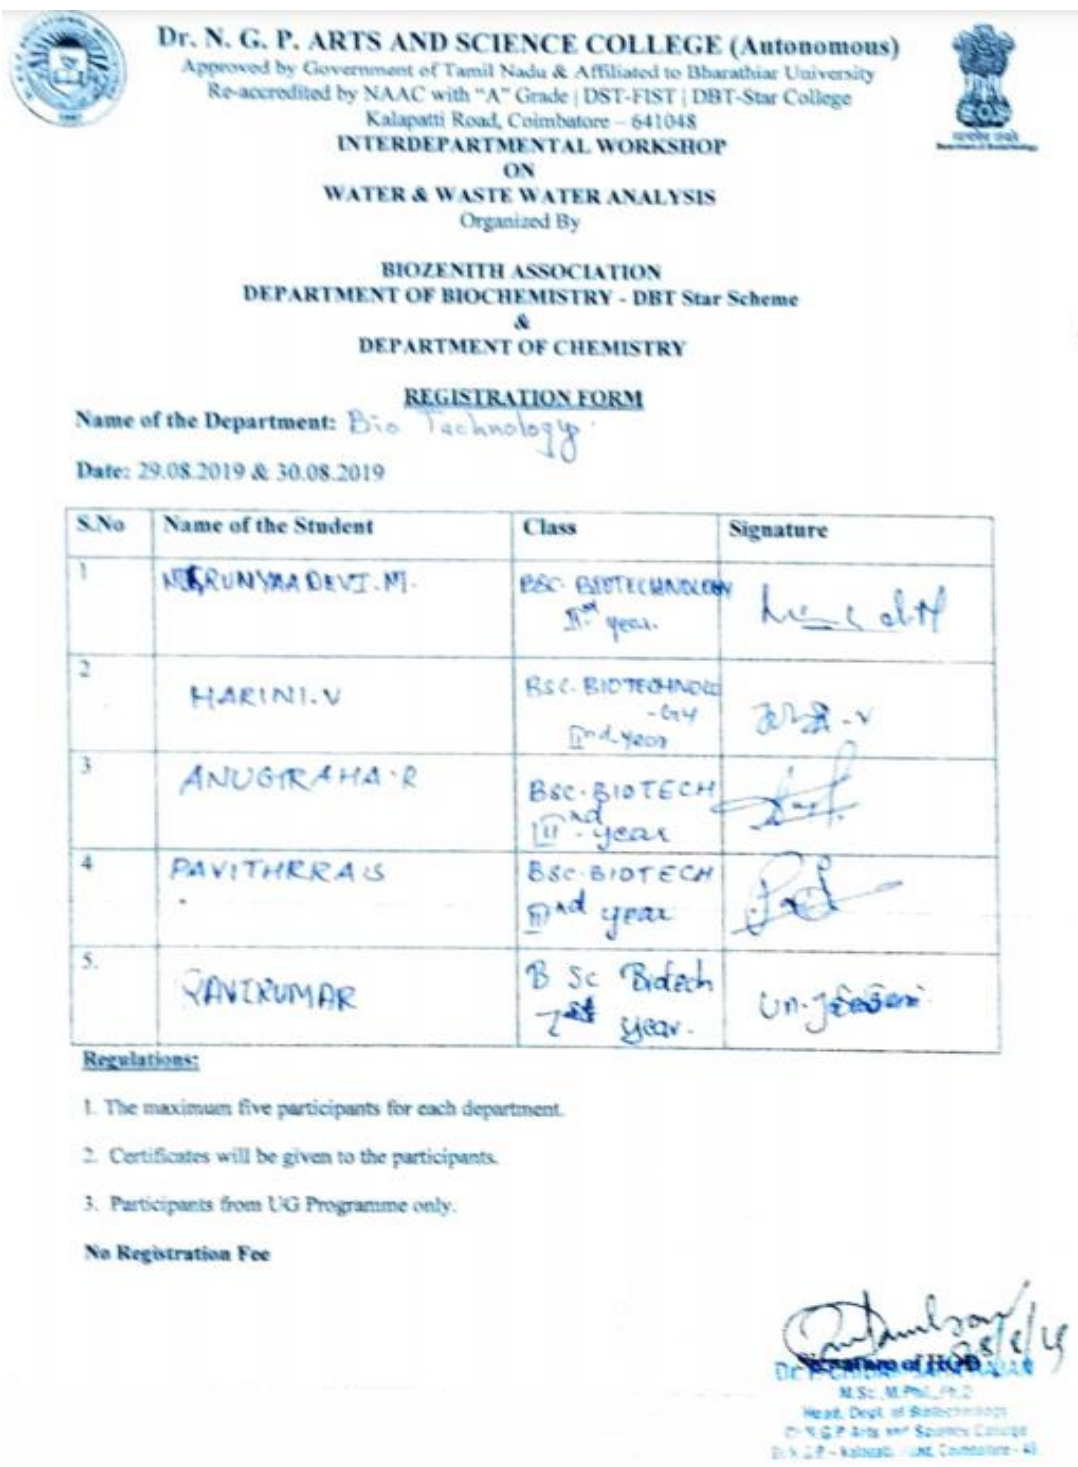 Dr. N. G. P. ARTS AND SCIENCE COLLEGE (Autonomous)
Approved by Government of Tamil Nadu & Affiliated to Bharathiar University
Re-accredited by NAAC with "A" Grade | DST-FIST | DBT-Star College
Kalapatti Road, Coimbatore – 641048
INTERDEPARTMENTAL WORKSHOP
ON
WATER & WASTE WATER ANALYSIS
Organized By
BIOZENITH ASSOCIATION
DEPARTMENT OF BIOCHEMISTRY - DBT Star Scheme
&
DEPARTMENT OF CHEMISTRY
REGISTRATION FORM
Name of the Department: Bio Technology.
Date: 29.08.2019 & 30.08.2019
S.No Name of the Student Class Signature
1 DEVI. M. BSC. BIOTECHNOLOGY
year.
2 HARINI.V BSC. BIOTECHNOLO
-GY
IInd-year
3 ANUGRAHA.R BSC.BIOTECH
nd
year
4 PAVITHRRA.S BSC.BIOTECH
nd year
5. RAVIKUMAR B Sc Biotech
year.
Regulations:
1. The maximum five participants for each department.
2. Certificates will be given to the participants.
3. Participants from UG Programme only.
No Registration Fee
Signature of HOD
M.Sc., M.Phil., Ph.D
Head, Dept. of Biotechnology
Dr. N.G.P. Arts and Science College
Coimbatore - 48